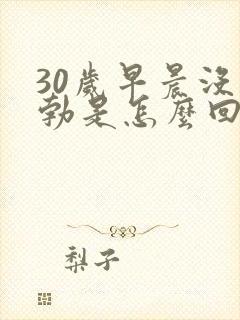 30歲早晨沒
勃是怎麼回
梨子